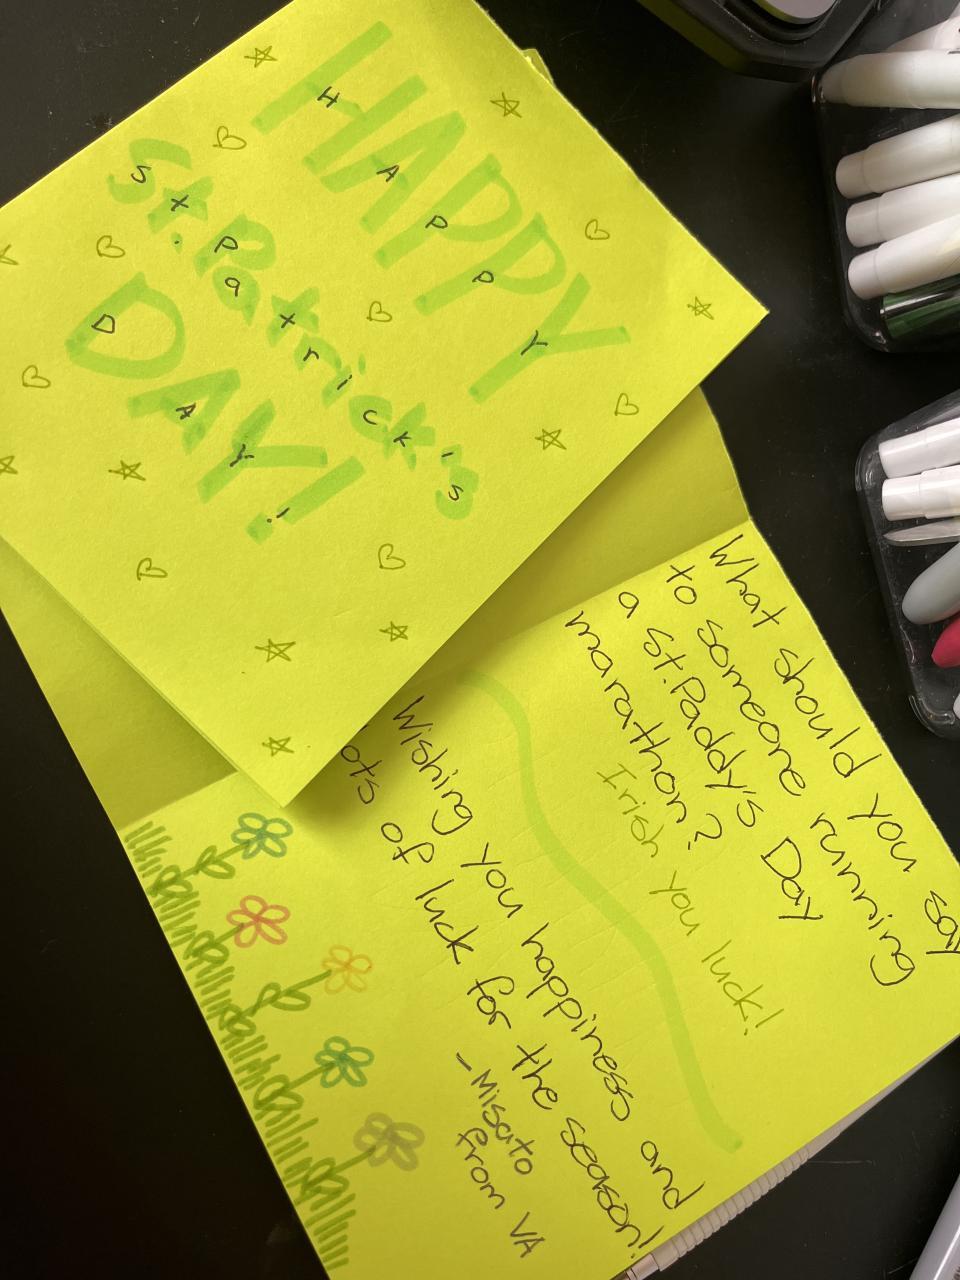 HAPPY
St. Patrick's
DAY!
What should you say
to someone running
a St.Paddy's Day
marathon?
Irish you luck!
Wishing you happiness and
ots of luck for the season!
- Misato
from VA